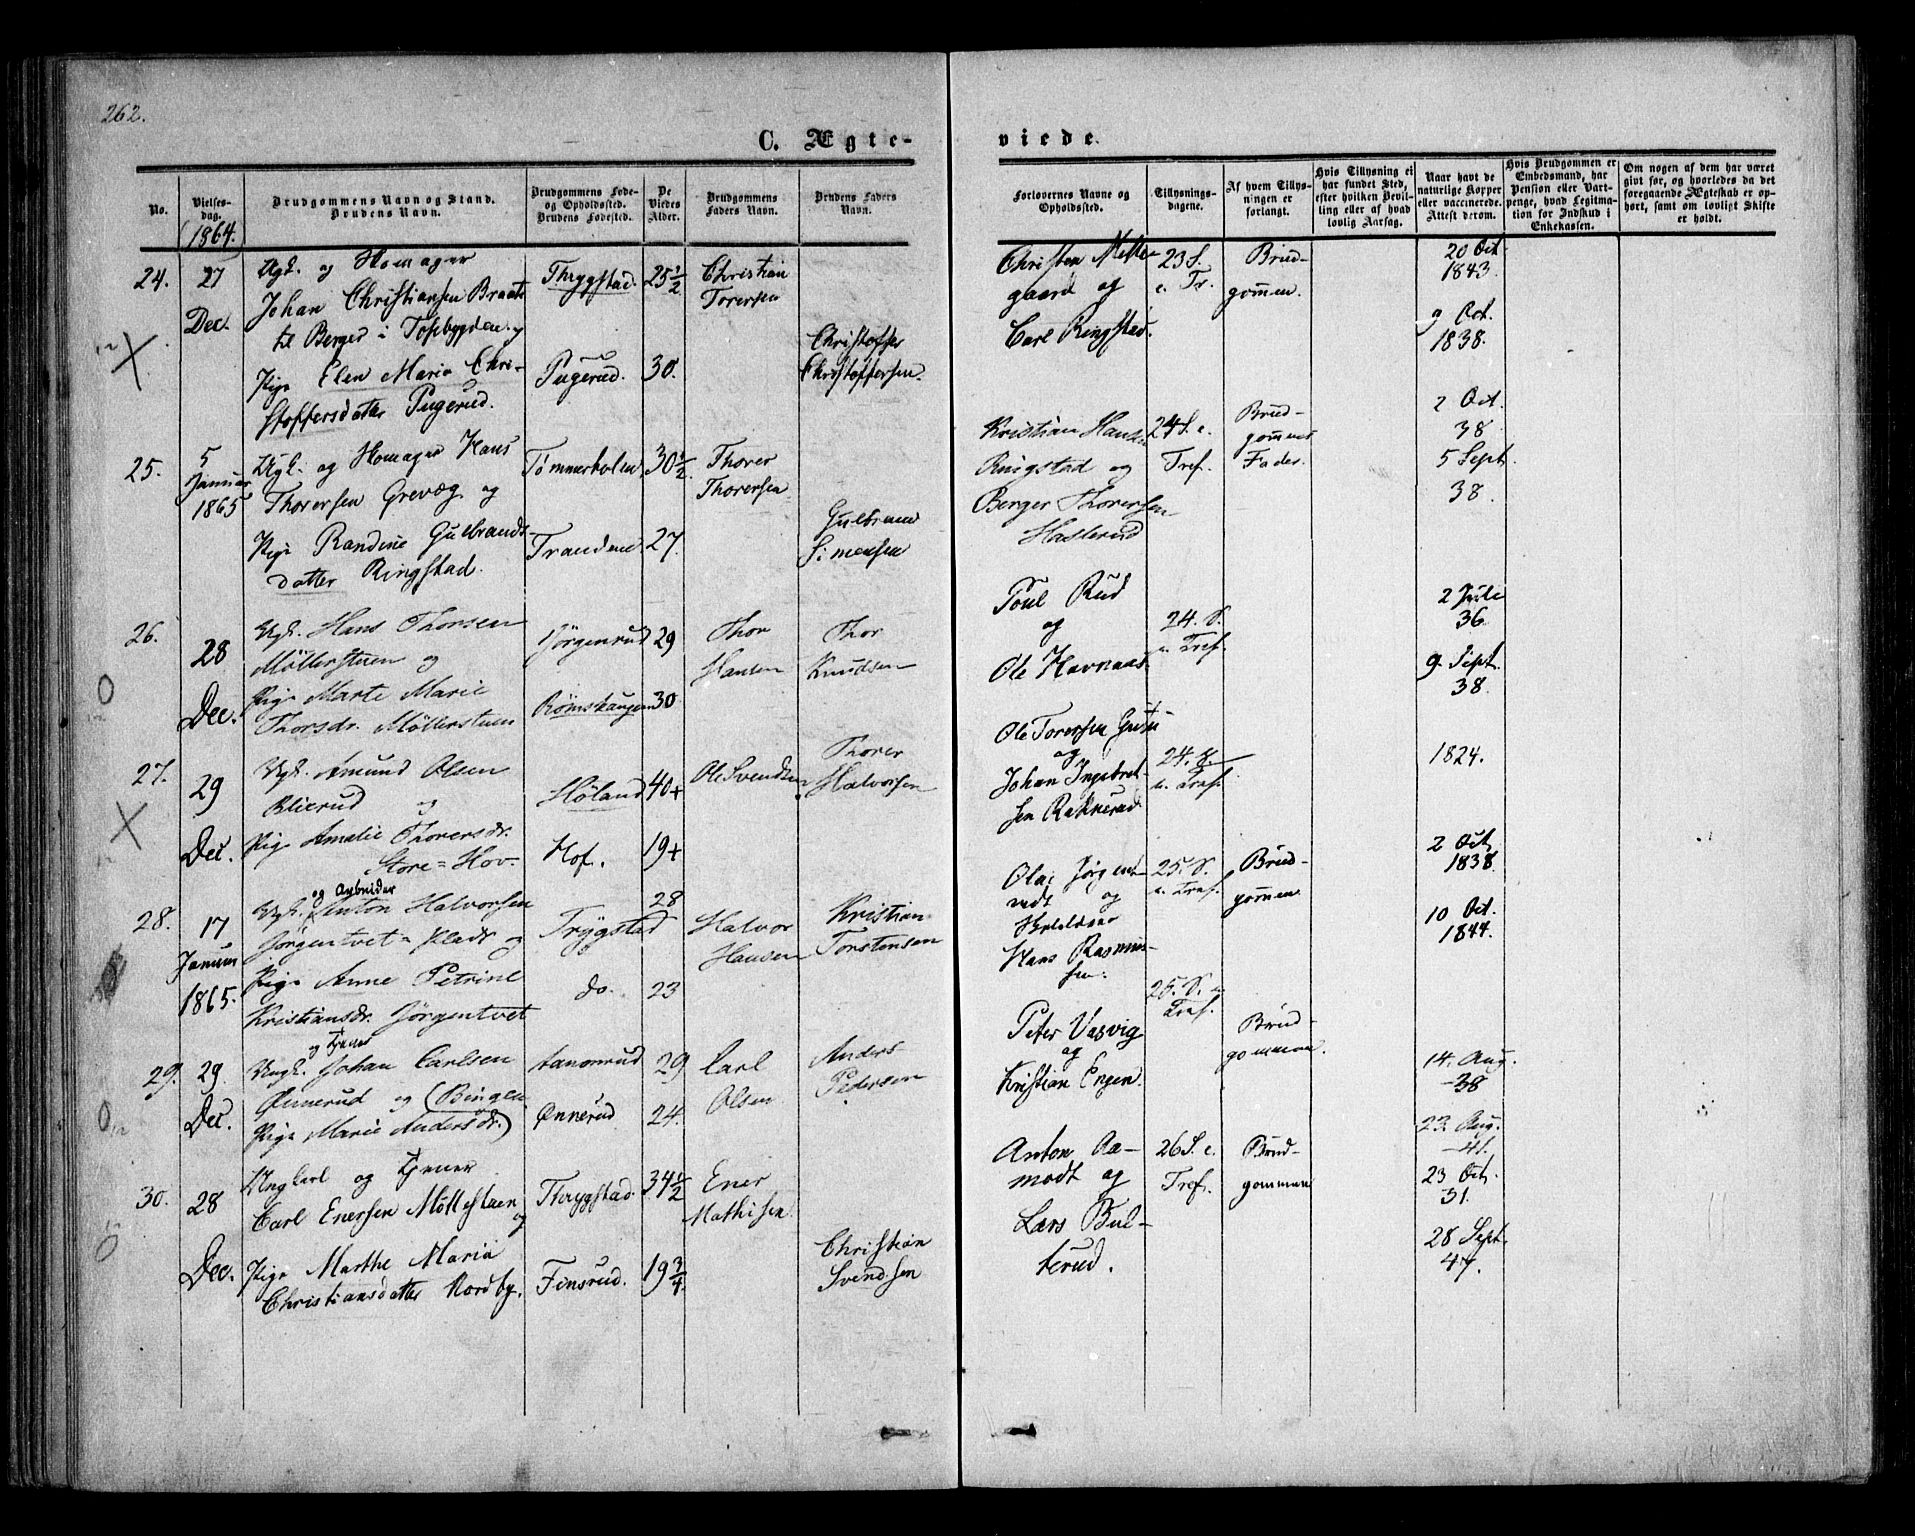 262.
C. Ægteviede.
No.
Vielsesdag.
(1864.)
Brudgommens Navn og Stand.
Brudens Navn.
Brudgommens Fødeog Opholdssted.
Brudens Fødested.
De Viedes Alder.
Brudgommens Faders Navn.
Brudens Faders Navn.
Forlovernes Navne og Opholdssted.
Tillysningsdagene.
Af hvem Tillysningen er forlangt.
Hvis Tillysning ei har fundet Sted, efter hvilken Bevilling eller af hvad lovlig Aarsag.
Naar havt de naturlige Kopper eller vaccinerede. Attest derom.
Hvis Brudgommen er Embedsmand, har Pension eller Vartpenge, hvad Legitimation for Indskud i Enkekassen.
Om nogen af dem har været givt før, og hvorledes da det foregaaende Ægteskab er ophørt, samt om lovligt Skifte er holdt.
24. 27 Dec.
Ugk. og Homager
Johan Christiansen Braate
til Berger i Tosebygden og
Pige Elen Marie Christoffersdatter Pugerud.
Thrygstad. 25 1/2
Pugerud. 30.
Christian Torersen
Christoffer Christoffersen.
Christen Mellegaard og
Carl Ringstad.
23 S. e. Tr.
Brudgommen.
20 Oct 1843.
9 Oct. 1838.
25. 5 Januar 1865
Ugk. og Homager Hans
Thorersen Grevæg og
Pige Randine Gulbrandsdatter Ringstad.
Tømmerholen 30 1/2
Trandem 27.
Thorer Thorersen
Gulbrand Simensen
Kristian Hansen
Ringstad og
Berger Thorersen
Haslerud
24 S. e. Tref.
Brudgommens Fader.
2 Oct. 38.
5 Sept. 38.
26. 28 Dec.
Ugk. Hans Thorsen
Møllerstuen og
Pige Marte Marie
Thorsdr. Møllerstuen
Jørgenrud 29
Rømskaugen 30
Thor Hansen
Thor Knudsen
Poul Rud
og
Ole Havnaas
24. S. e. Tref.
2 Juli 36.
9. Sept. 38.
27. 29 Dec.
Ugk. Amund Olsen
Blierud og
Pige Amalie Thorersdr.
Store=Hov
Høland 40+
Hof. 19+
Ole Svendsen
Thorer Halvorsen
Ole Torersen
og
Johan Ingebretsen Rakkerud
24. S. e. Tref.
1824.
28. 17 Januar 1865.
Ugk. og Arbeider Anton Halvorsen
Jørgentvet=Plads og
Pige Anne Petrine
Kristiansdr. Jørgentvet
Trygstad 28
do. 23
Halvor Hansen
Kristian Torstensen
Olai Jørgentvedt og
Hans Rasmussen.
25. S. e. Tref.
Brudgommen
2 Oct. 1838.
10 Oct. 1844.
29. 29. Dec.
Ungk. og Tjener Johan Carlsen
Ønnerud og (Bingen
Pige Marie Andersdr.)
29
Ønnerud 24.
Carl Olsen
Anders Pedersen
Peter Vasvig
og
Kristian Engen
25. S. e. Tref.
Brudgommen.
14. Aug. -38
23. Aug. -41.
30. 28 Dec.
Ungkarl og Tjener
Carl Enersen Møllestuen og
Pige Marthe Maria
Christiansdatter Nordby.
Thrygstad. 34 1/2
Finsrud. 19 3/4
Ener Mathisen
Christian Svendsen
Anton Aamodt og
Lars Bulterud.
26 S. e. Tref.
Brudgommen
23 Oct. 31.
28 Sept. 47.